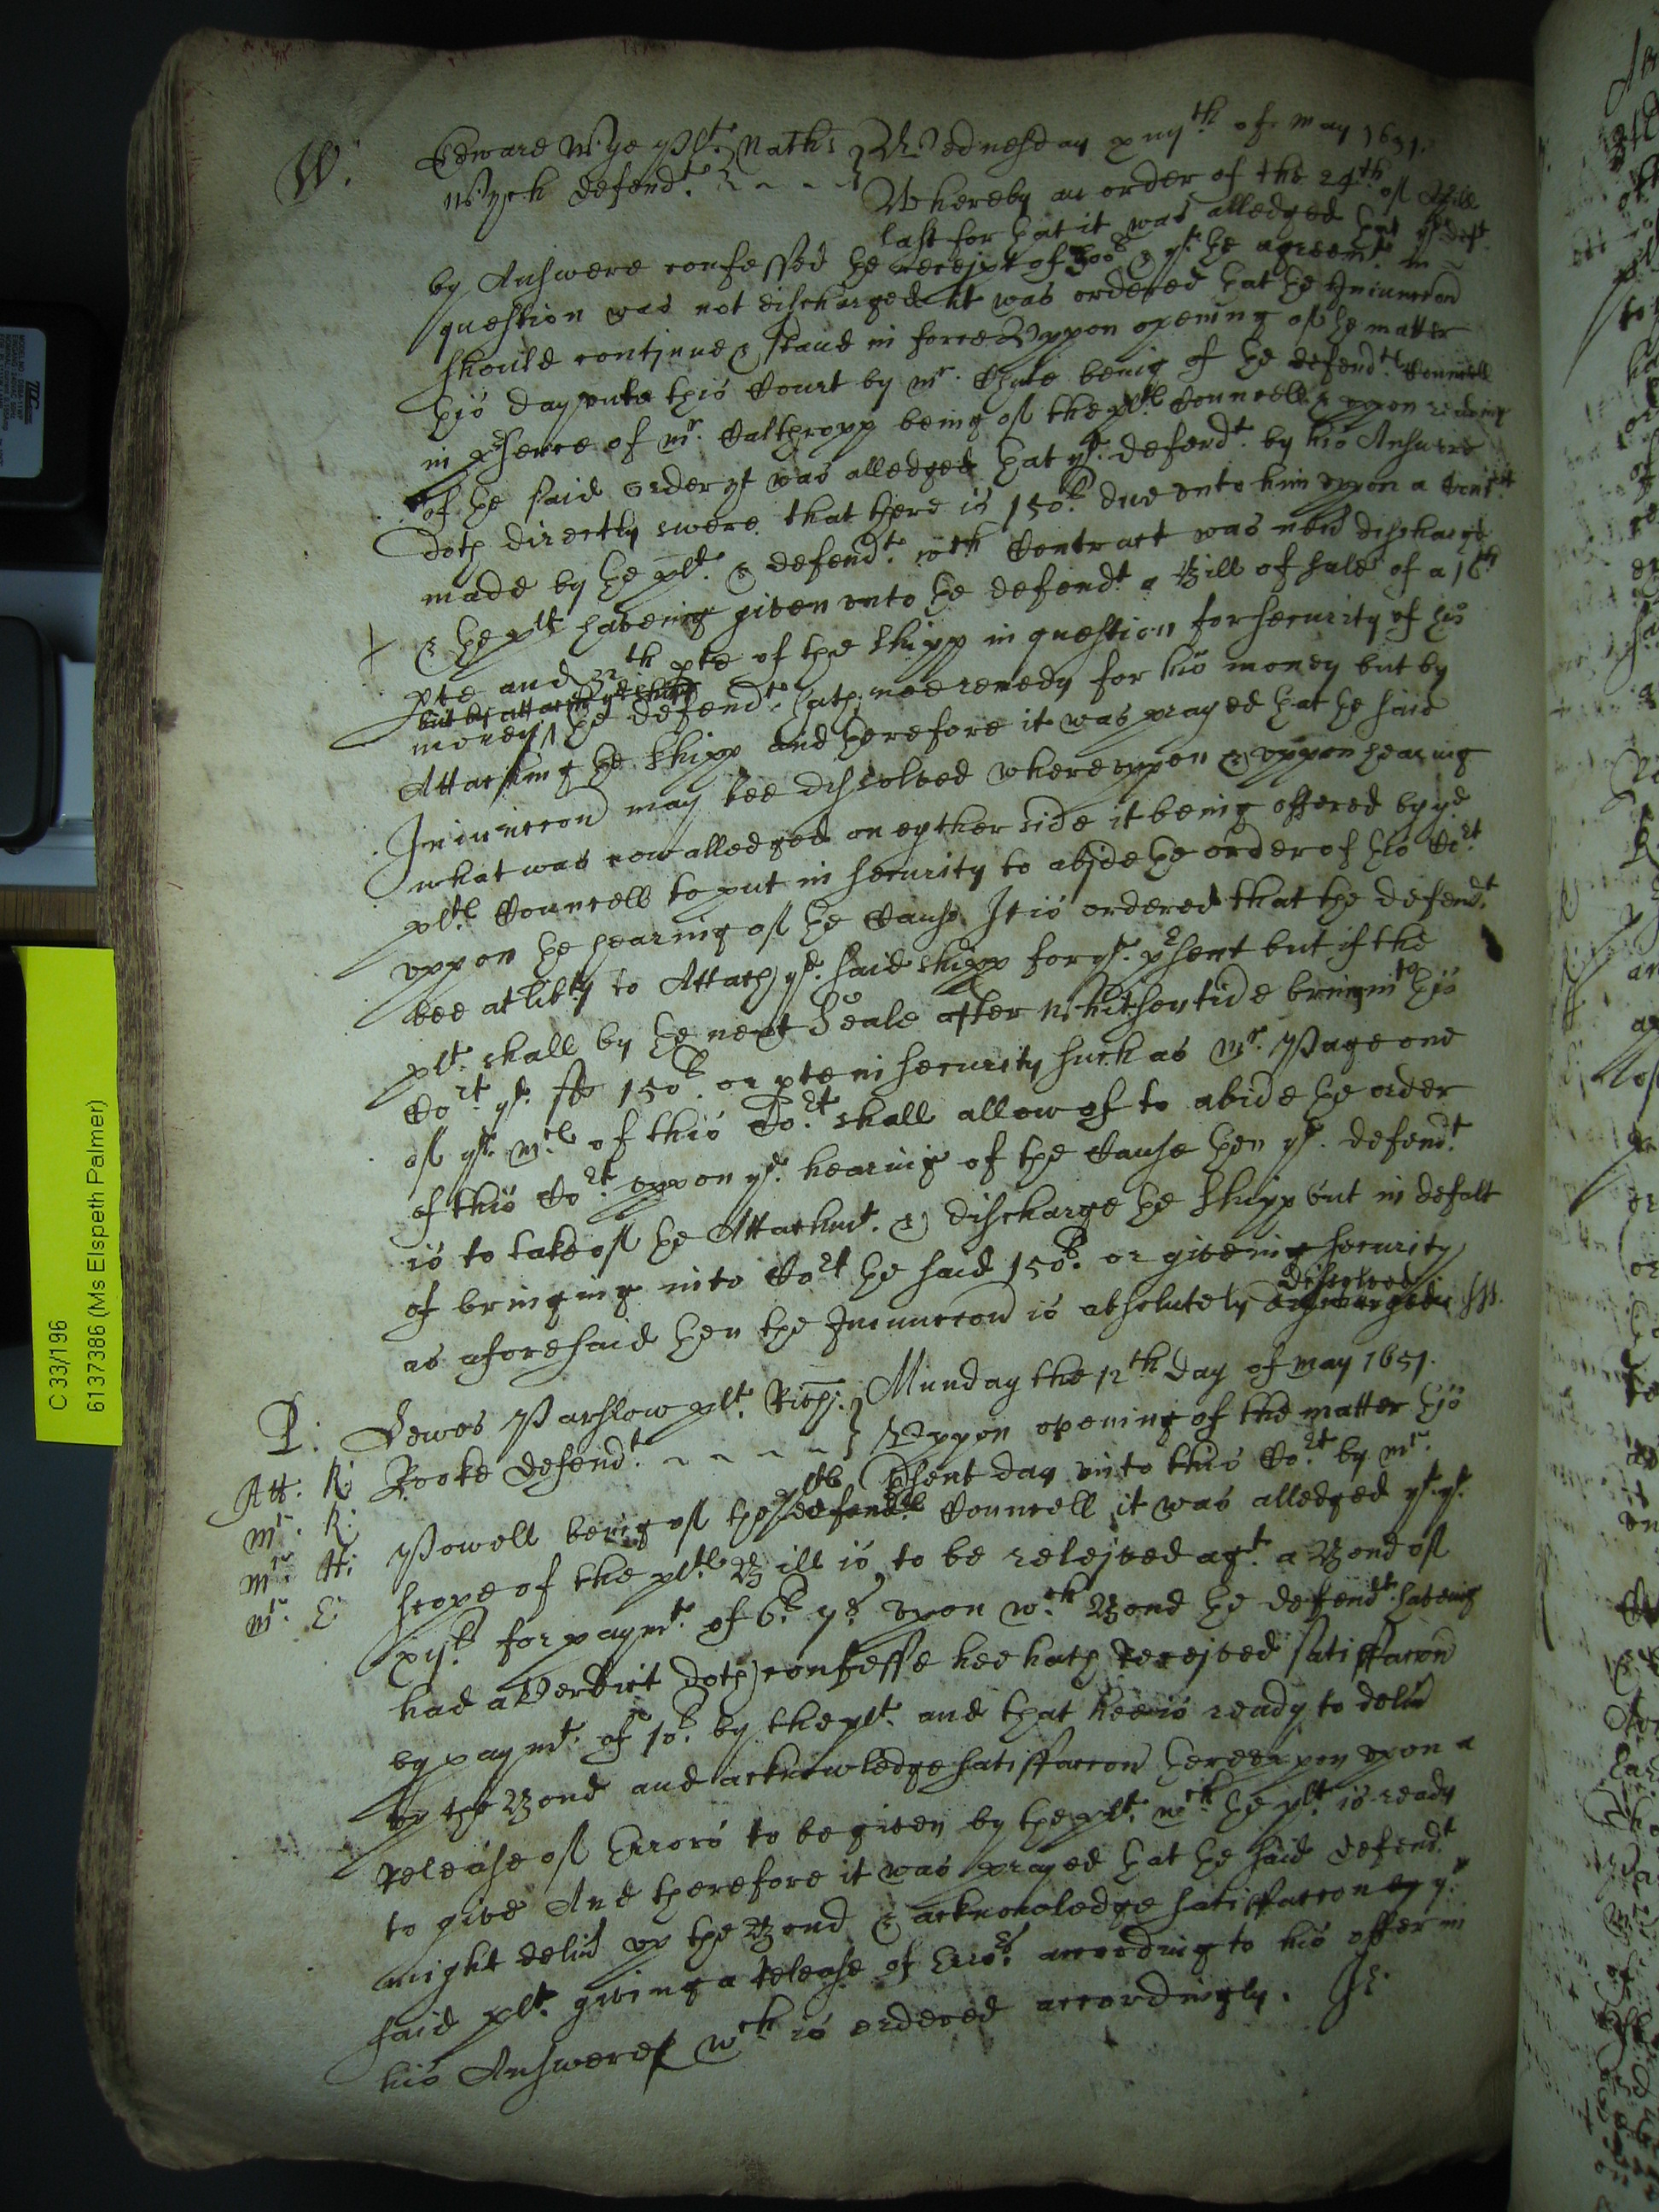 W. Edward Wye plt. Nath: } Wednesday xiiijth of May 1651.
Wych defendt. } Whereby an order of the 24th of Aprill
last for that it was alledged that ye deft.
by Answere confessed the receipt of 300li & yt the agreemt in
question was not discharged it was ordered that the Iniunccon
should contynue & stand in force Uppon opening of the matter
this day unto this Court by Mr. being of the defendts. Councell
in psence of Mr. Calthropp being of the plts Councell & uppon reading
of the said order yt was alledged that ye. defendt. by his Answere
doth directly sweare that there is 150li. due unto him uppon a Contract
made by the plt. & defendt. wch Contract was never discharged
& the plt haveing given unto the defendt a Bill of sale of a 16th
pte and 32th pte of the shipp in question for security of his
but by attaching the shipp
money, the defendt. hath noe remedy for his money but by
Attaching the Shipp and therefore it was prayed that the said
Iniunccon may bee dissolved whereuppon & uppon hearing
what was now alledged on eyther side it being offered by ye
plts. Councell to put in security to abide the order of this Cort
uppon the hearing of the Cause It is ordered that the defendt.
bee at libty to Attach ye. said shipp for ye. psent but if the
plt. shall by the next Seale after Whitsontide bring into this
Cort. ye. sd 150li. or put in security such as Mr. Page one
of ye. Mrs of this Cort. shall allow of to abide the order
of this Cort. uppon ye. hearing of the Cause then ye. defendt.
is to take of the Attachmt. & discharge the shipp but in defalt
of bringing into Cort the said 150li. or giveing security
dissolved
as aforesaid then the Iniunccon is absolutely discharged
P: Dewes Parslow plt. Rich: } Munday the 12th day of May 1651.
Att: R: Rooke Defendt. } Uppon opening of the matter this
Mr. R: plts psent day unto this Cort. by Mr.
Mr. H: Powell being of the defendts Councell it was alledged yt. ye.
Mr. E: scope of the plts. Bill is to be releived agt. a Bond of
xijli. for paymt. of 6li. 7s. upon wch. Bond the defendt. haveing
had a Verdict doth confesse hee hath Received satisfaccon
by paymt. of 10li. by the plt. and that hee is ready to delivr
up the Bond and acknowledge satisfaccon thereuppon upon a
release of Errors to be given by the plt. wch the plt. is ready
to give And therefore it was prayed that the said defendt.
might delivr up the Bond & acknowledge satisfaccon ye.
said plt. giving a Release of Errors. according to his offer in
his Answere wch is ordered accordingly.
C 33/196
61373386 (Ms Elspeth Palmer)